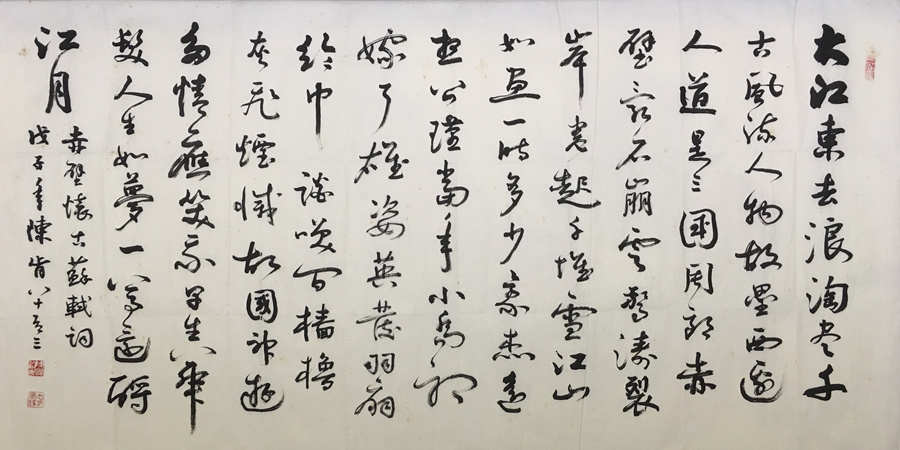 大江東去浪淘盡千
古風流人物故壘西邊
人道是三國周郎赤
壁亂石崩雲驚濤裂
岸卷起千堆雪江山
如畫一時多少豪杰遙
想公瑾當年小喬初
嫁了雄姿英發羽扇
綸巾談笑間檣櫓
灰飛煙滅故國神遊
多情應笑我早生華
髮人生如夢一尊還酹
江月
赤壁懷古蘇軾詞
戊子年陳肯八十有三